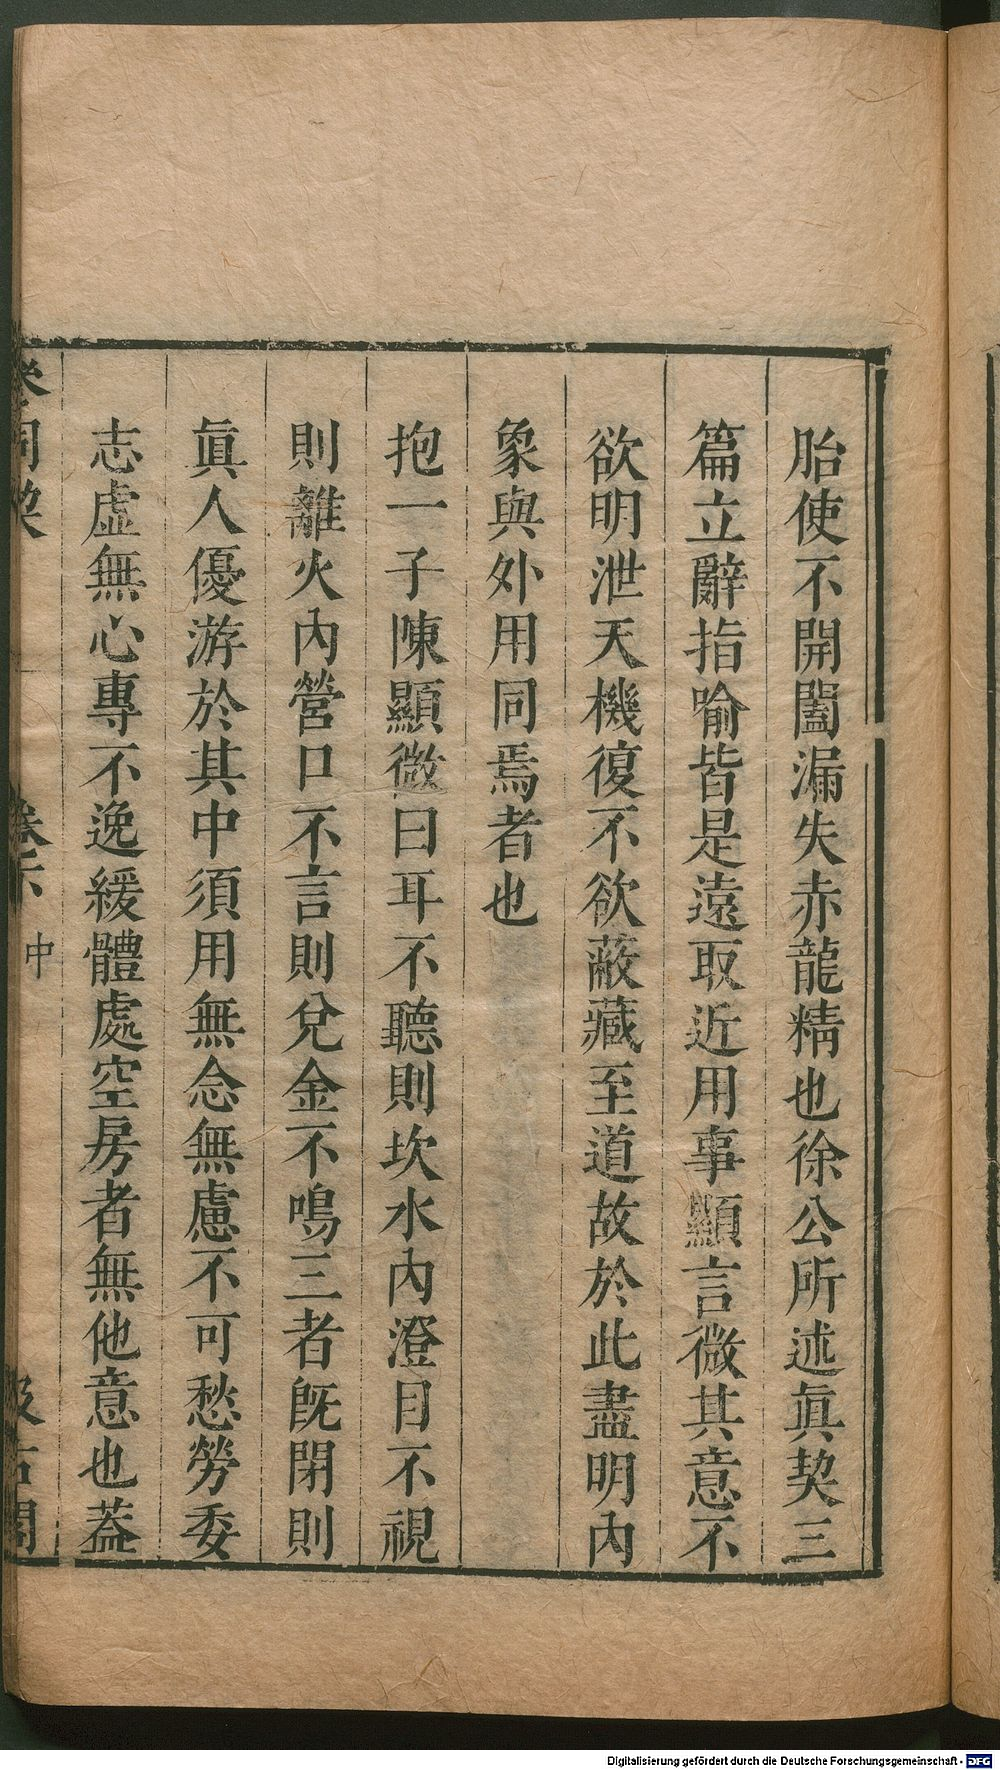 胎使不開闔漏失赤龍精也徐公所述眞契三
篇立辭指喻皆是遠取近用事顯言微其意不
欲明泄天機復不欲蔽藏至道故於此盡明內
象與外用同焉者也
抱一子陳顯微曰耳不聽則坎水內澄目不視
則離火內營口不言則兌金不鳴三者旣閉則
眞人優游於其中須用無念無慮不可愁勞委
志虛無心專不逸緩體處空房者無他意也蓋
參同契 卷六 中 汲古閣
Digitalisierung gefördert durch die Deutsche Forschungsgemeinschaft - DFG